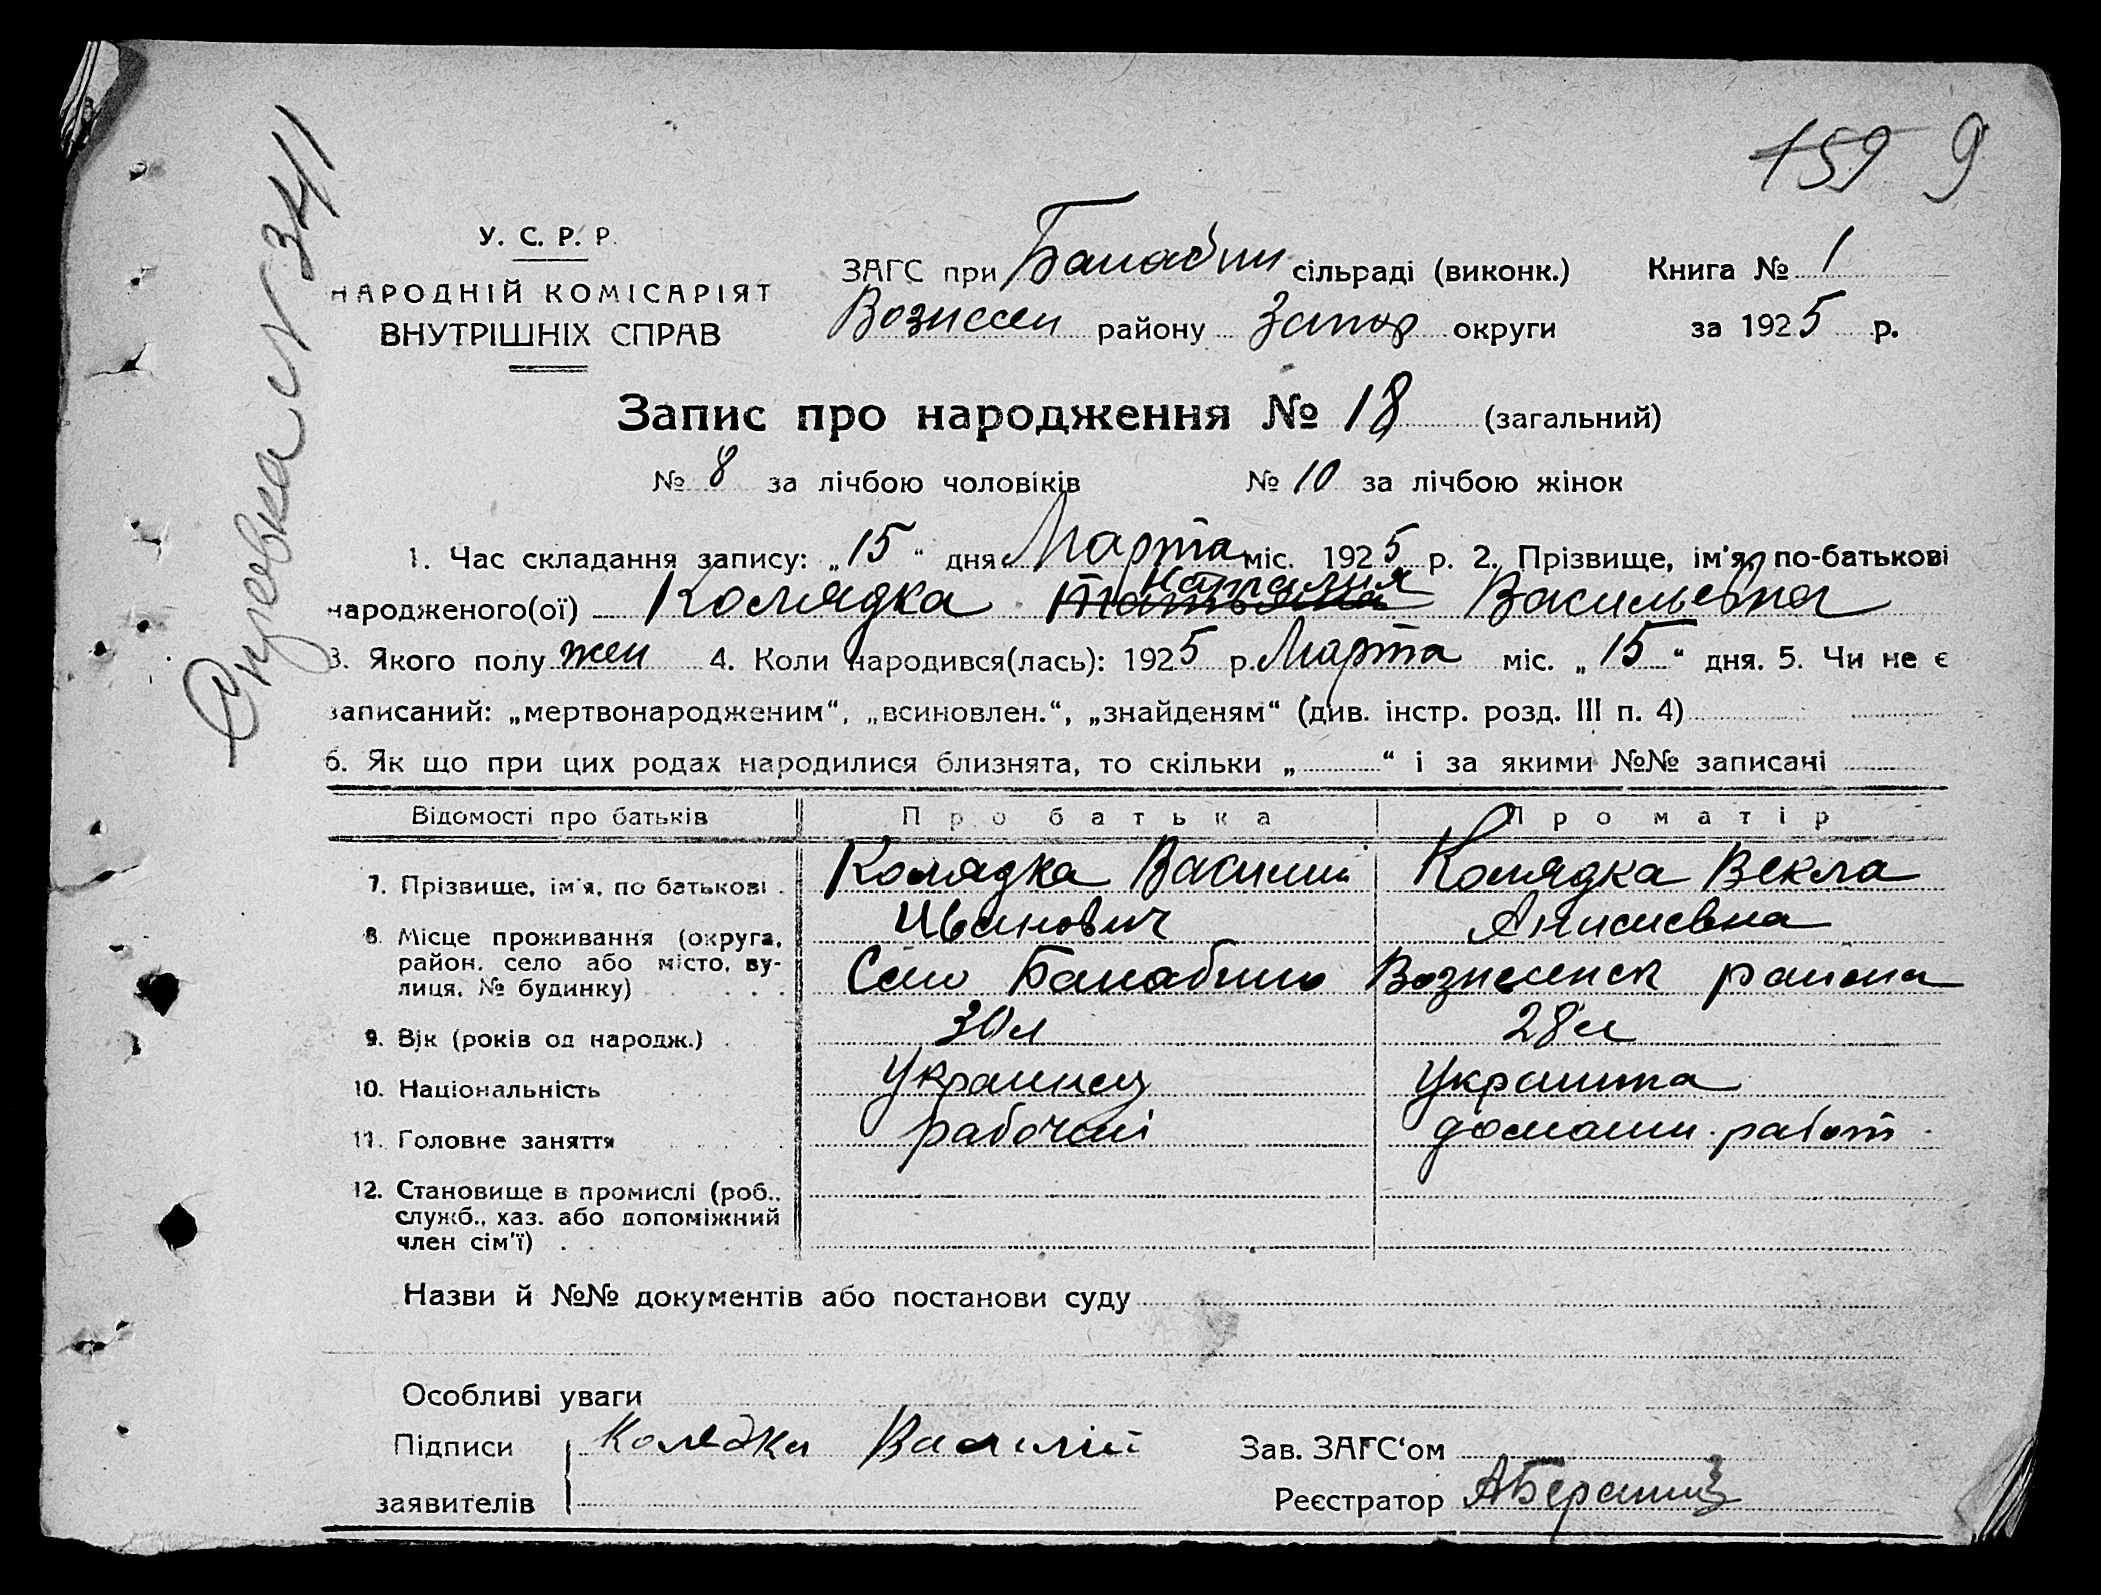 159 9
Справка N 341
У. С. Р. Р.
НАРОДНІЙ КОМІСАРІЯТ
ВНУТРІШНІХ СПРАВ
ЗАГС при Балабин сільраді (виконк.) Книга № 1
Вознесен району Запор округи за 1925 р.
Запис про народження № 18 (загальний)
№ 8 за лічбою чоловіків № 10 за лічбою жінок
1. Час складання запису: „15“ дня Марта міс. 1925 р. 2. Прізвище, ім'я, по-батькові
Наталия
народженого(ої) Колядка Татьяна Васильевна
3. Якого полу жен 4. Коли народився(лась): 1925 р. Марта міс. „15“ дня. 5. Чи не є
записаний: „мертвонародженим“, „всиновлен.“, „знайденям“ (див. інстр. розд. III п. 4)
6. Як що при цих родах народилися близнята, то скільки „ “ і за якими №№ записані
Відомості про батьків Про батька Про матір
7. Прізвище, ім'я, по батькові . Колядка Василий Колядка Векла
Иванович Анисиевна
8. Місце проживання (округа, район, село або місто, ву-
лиця, № будинку) Село Балабино Вознесенск района
9. Вік (років од народж.) 30 л 28 л
10. Національність Украинец Украинка
11. Головне заняття рабочий домашн. работ
12. Становище в промислі (роб.,
служб., хаз. або допоміжний
член сім'ї)
Назви й №№ документів або постанови суду
Особливі уваги
Підписи Колядка Василий Зав. ЗАГС'ом
заявителів Реєстратор